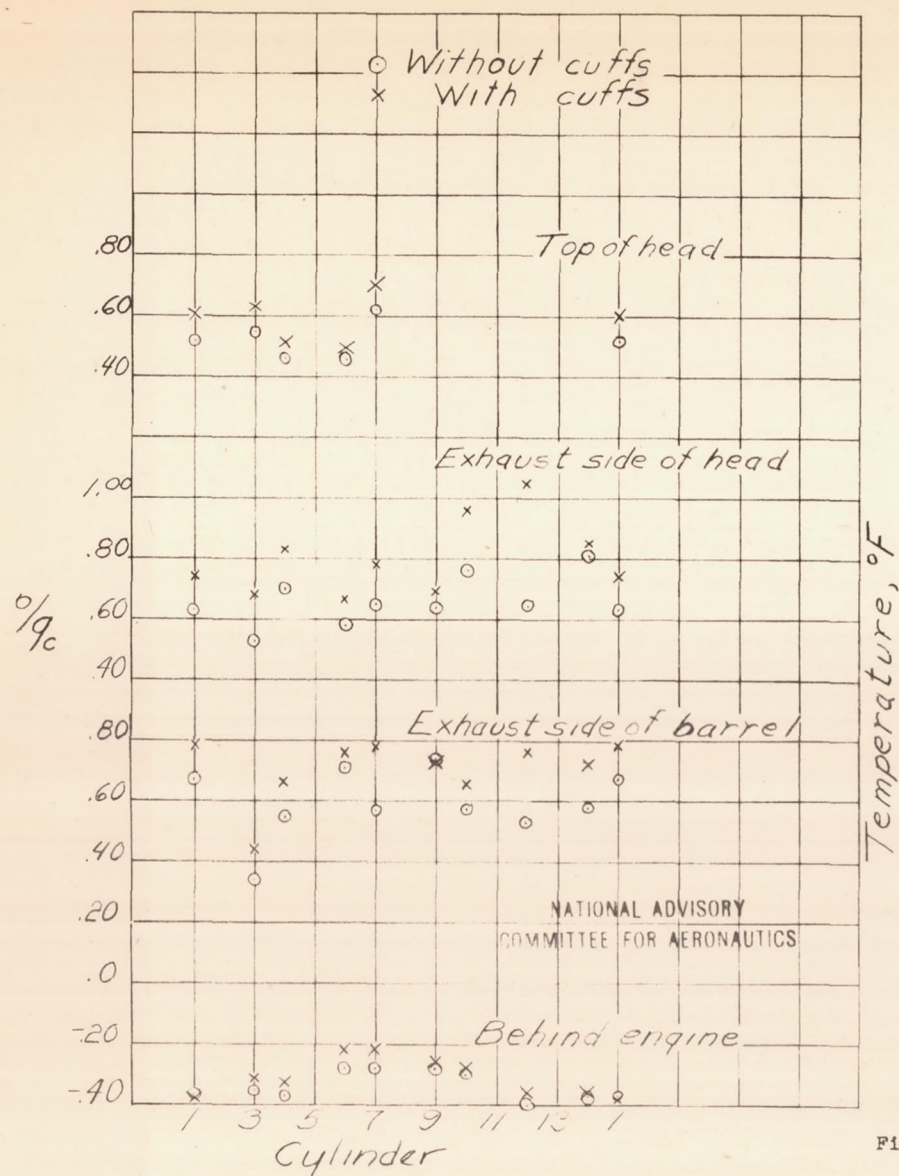 Without cuffs
With cuffs
Top of head
.80
.60
.40
Exhaust side of head
1.00
.80
.60
.40
Exhaust side of barrel
.80
.60
.40
.20
.0
-.20
-.40
NATIONAL ADVISORY
COMMITTEE FOR AERONAUTICS
Behind engine
1 3 5 7 9 11 13 1
Cylinder
Temperature, °F